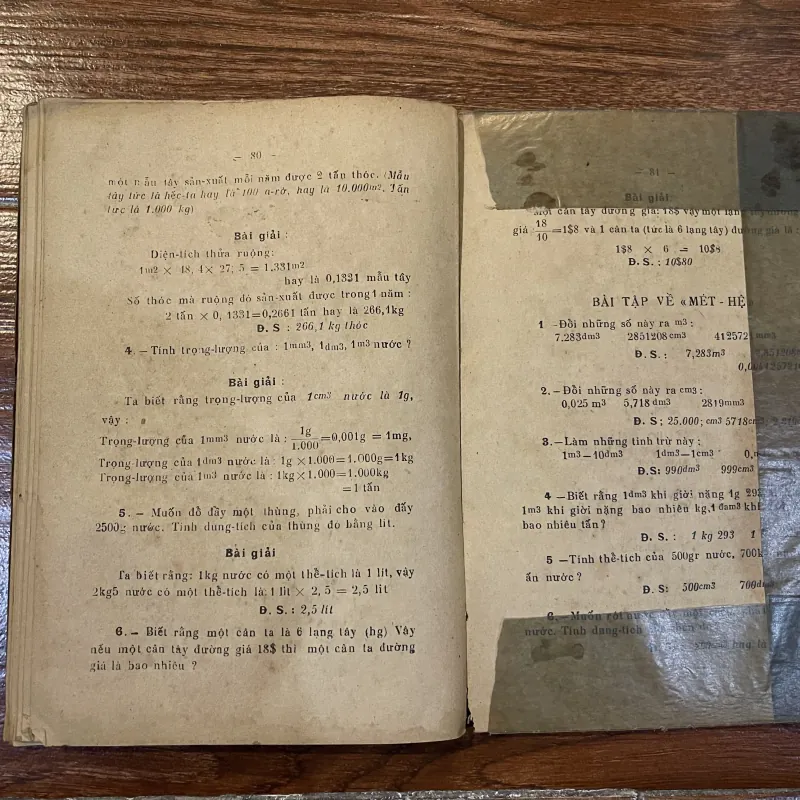 — 80 -
một mẫu tây sản-xuất mỗi năm được 2 tấn thóc. (Mẫu
tây tức là héc-ta hay là 100 a-rờ, hay là 10.000m2, Tấn
tức là 1.000 kg)
Bài giải :
Diện-tích thửa ruộng:
1m2 × 48, 4 × 27, 5 = 1.331m2
hay là 0,1331 mẫu tây
Số thóc mà ruộng đó sản-xuất được trong 1 năm :
2 tấn × 0, 1331=0,2661 tấn hay là 266,1kg
Đ. S : 266,1 kg thóc
4. – Tính trọng-lượng của : 1mm3, 1dm3, 1m3 nước ?
Bài giải :
Ta biết rằng trọng-lượng của 1cm3 nước là 1g,
vậy :
Trọng-lượng của 1mm3 nước là : 1g/1.000=0,001g = 1mg,
Trọng-lượng của 1dm3 nước là : 1g ×1.000=1.000g=1kg
Trọng-lượng của 1m3 nước là : 1kg×1.000=1.000kg
=1 tấn
5. – Muốn đổ đầy một thùng, phải cho vào đấy
2500g nước. Tính dung-tích của thùng đo bằng lít.
Bài giải
Ta biết rằng: 1kg nước có một thể-tích là 1 lít, vậy
2kg5 nước có một thể-tích là 1 lít × 2, 5 = 2,5 lít
Đ. S. : 2,5 lít
6. – Biết rằng một cân ta là 6 lạng tây (hg) Vậy
nếu một cân tây đường giá 18$ thì một cân ta đường
giá là bao nhiêu ?
— 81 -
Bài giải:
Một cân tây đường giá: 18$ vậy một lạng tây đường
giá 18/10=1$8 và 1 cân ta (tức là 6 lạng tây) đường giá là :
1$8 × 6 = 10$8
Đ. S. : 10$80
BÀI TẬP VỀ «MÉT - HỆ»
1 –Đổi những số này ra m3 :
7.283dm3 2851208cm3 412572 mm3
Đ. S. : 7,283m3
2. –Đổi những số này ra cm3 :
0,025 m3 5,718 dm3 2819mm3
Đ. S; 25.000; cm3 5718c
3. –Làm những tính trừ này :
1m3–10dm3 1dm3–1cm3
Đ. S: 990dm3 999cm3
4 –Biết rằng 1dm3 khí giời nặng 1g 293
1m3 khí giời nặng bao nhiêu kg, 1dam3 khí
bao nhiêu tấn?
Đ. S. : 1 kg 293
5 –Tính thể-tích của 500gr nước, 700k
ấn nước ?
Đ. S: 500cm3 700d
6. –Muốn
nước. Tính dung-tích